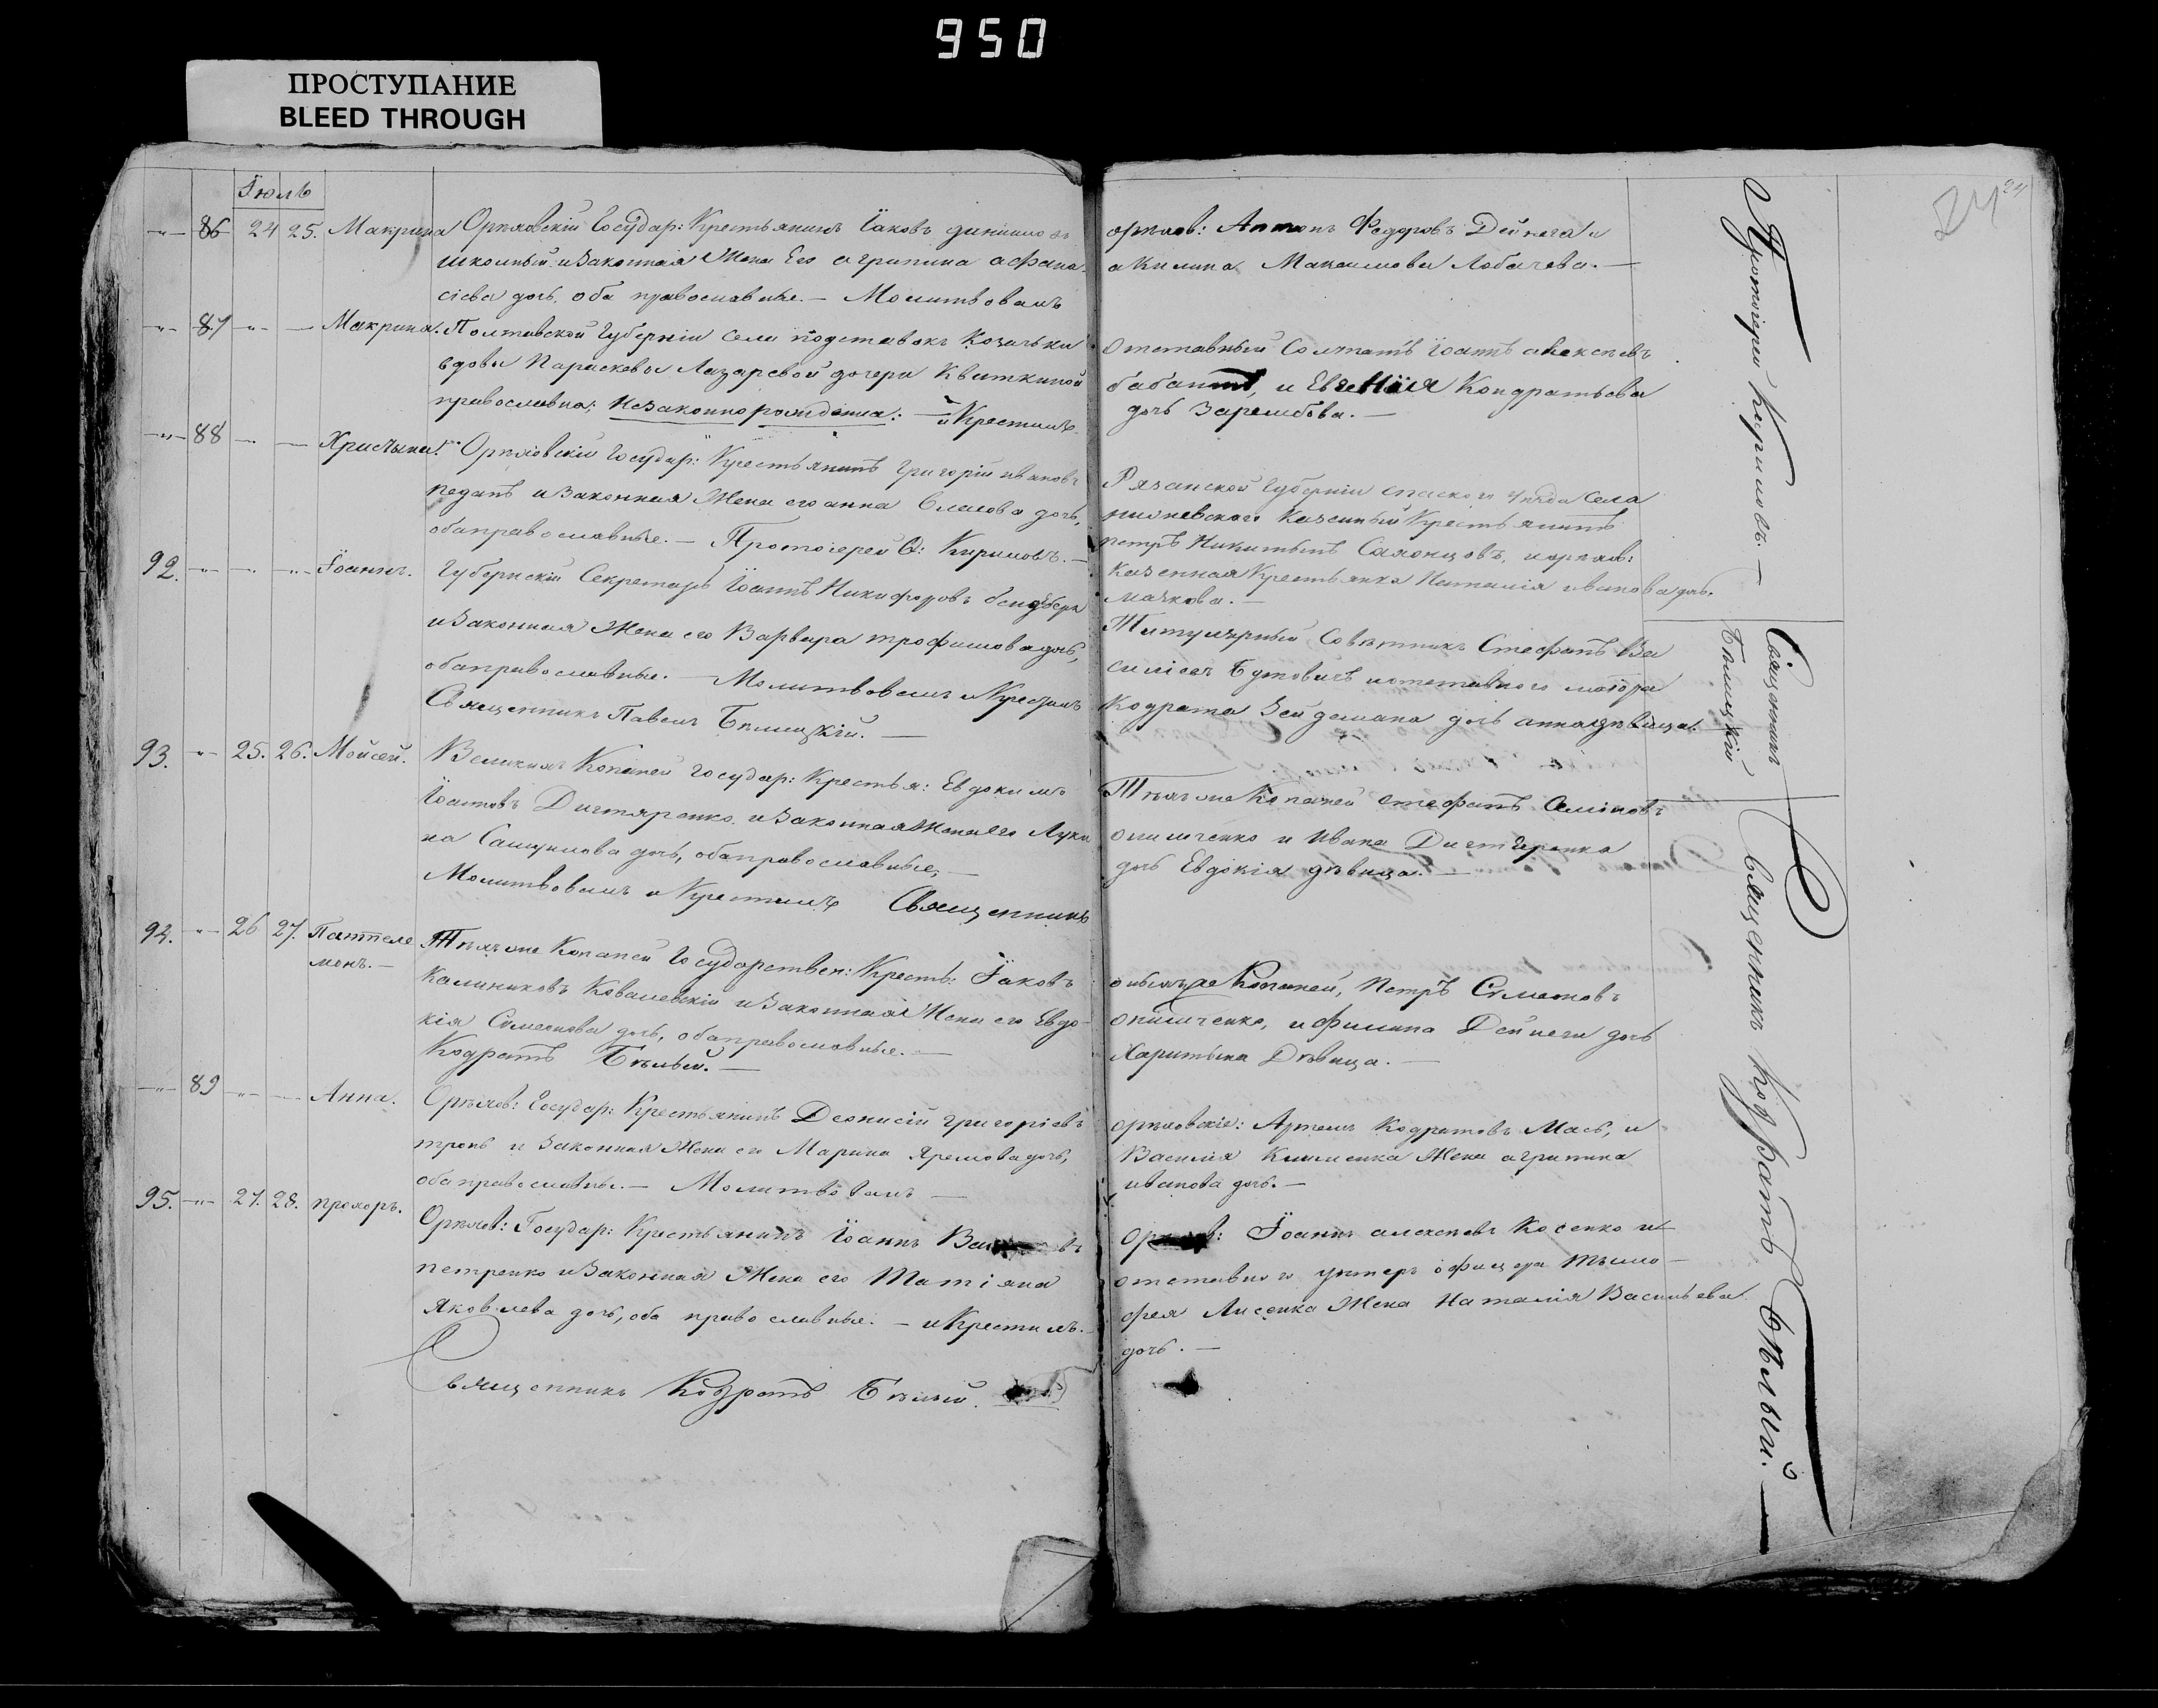 950
ПРОСТУПАНИЕ
BLEED THROUGH
24
24
Іюль
86 24 25. Макрина Орѣховскій Государ: Крестьянинъ Іаковъ
школный и законная Жена Его агрипина афана-
сіева дочь, оба православные. — Молитвовалъ
87 Макрина. Полтавской Губерніи села подставокъ Козачьки
вдовы Параскевы Лазаревой дочери Квиткиной
православна; незаконнорожденна: — и Крестилъ
88 Христина. Орѣховскій Государ: Крестьянинъ григорій ивановъ
педанъ и законная Жена его анна Власова дочь,
оба православные. — Протоіерей Кириловъ. —
92. Іоаннъ. Губернскій Секретарь Іоаннъ Никифоровъ
и законная Жена его Варвара трофимова дочь,
оба православные. — Молитвовалъ и Крестилъ
Священникъ Павелъ Бѣлицкій. —
93. 25. 26. Мойсей. Великихъ Копаней государ: Крестья: Евдокимъ
Іоанновъ Дихтяренко и законная Жена Его Луки-
на Самуилова дочь, оба православные, —
Молитвовалъ и Крестилъ Священникъ
94. 26 27. Пантеле
монъ. —
Тѣхъ же Копаней Государствен: Кресть: Іаковъ
Калиниковъ Ковалевскій и законная Жена его Евдо-
кія Симеонова дочь, оба православные. —
Кодратъ Бѣлый. —
89 Анна. Орѣхов: Государ: Крестьянинъ Деонисій григоріевъ
тронь и законная Жена его Марина Яремова дочь,
оба православные. — Молитвовалъ —
95. 27. 28. прохоръ. Орѣхов: Государ: Крестьянинъ Іоаннъ
петренко и законная Жена его Татіяна
Яковлева дочь, оба православные. — и Крестилъ. —
Священникъ Кодратъ Бѣлый.
орѣхов: Антонъ Федоровъ Дейнега и
акилина Максимова Лобачева. —
Отставный Солдатъ Іоаннъ алексѣевъ
и Евгенія Кондратьева
дочь Зарембова. —
Рязанской Губерніи спаского уѣзда Села
Казенный Крестьянинъ
петръ Никитинъ и орѣхов:
Казенная Крестьянка Наталія иванова дочь
Титулярный Совѣтникъ Стефанъ Ва
силіевъ Бутовичъ и отставного маіора
Кодрата Зейдемана дочь анна дѣвица.
Тѣхъ же Копаней стефанъ
опишченко и Ивана Дихтяренка
дочь Евдокія дѣвица. —
обыхъ же Копаней, Петръ Симеоновъ
опишченко, и филипа Дейнеги дочь
Харитына Дѣвица. —
орѣховскіе: Артемъ Кодратовъ Мась, и
Василія Клименка Жена агрипина
иванова дочь. —
Орѣхов: Іоаннъ алексѣевъ Косенко и
отставного унтеръ офицера Тымо-
фея Лисенка Жена Наталія Васильева
дочь. —
Протоіерей Кириловъ. —
Священникъ
Бѣлицкій
Священникъ Кодратъ Бѣлый. —